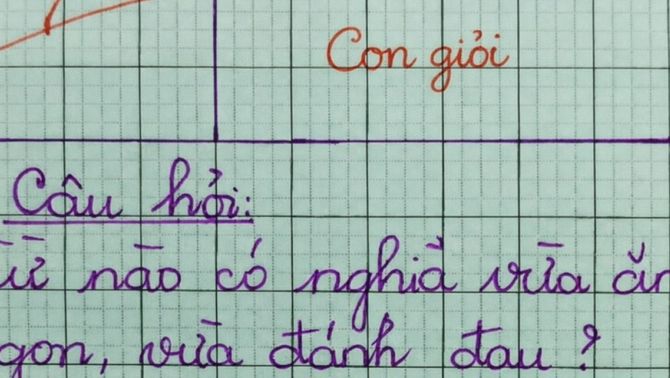 Con giỏi
Câu hỏi:
nào có nghĩa vừa ăn
gon, vừa đánh đau?